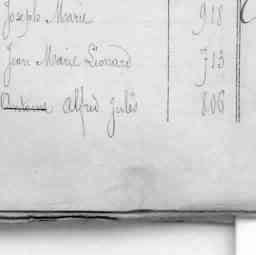 Joseph Marie 918
Jean Marie Léonard 713
Antoine Alfred Jules 806